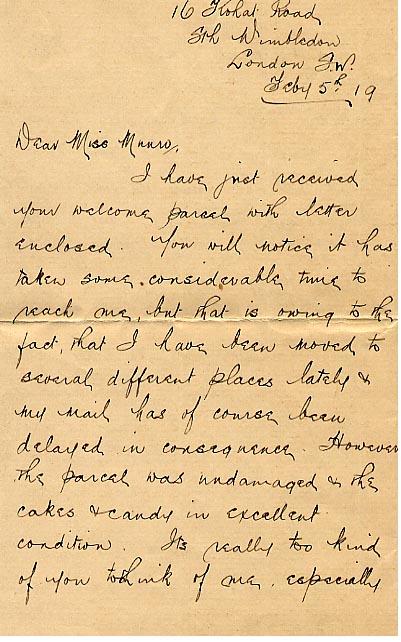 16 Kohat Road
Sth Wimbledon
London S.W.
Feby 5th 19
Dear Miss Munro,
I have just received
your welcome parcel with letter
enclosed. You will notice it has
taken some considerable time to
reach me, but that is owing to the
fact, that I have been moved to
several different places lately &
my mail has of course been
delayed in consequence. However
the parcel was undamaged & the
cakes & candy in excellent
condition. Its really too kind
of you to think of me, especially